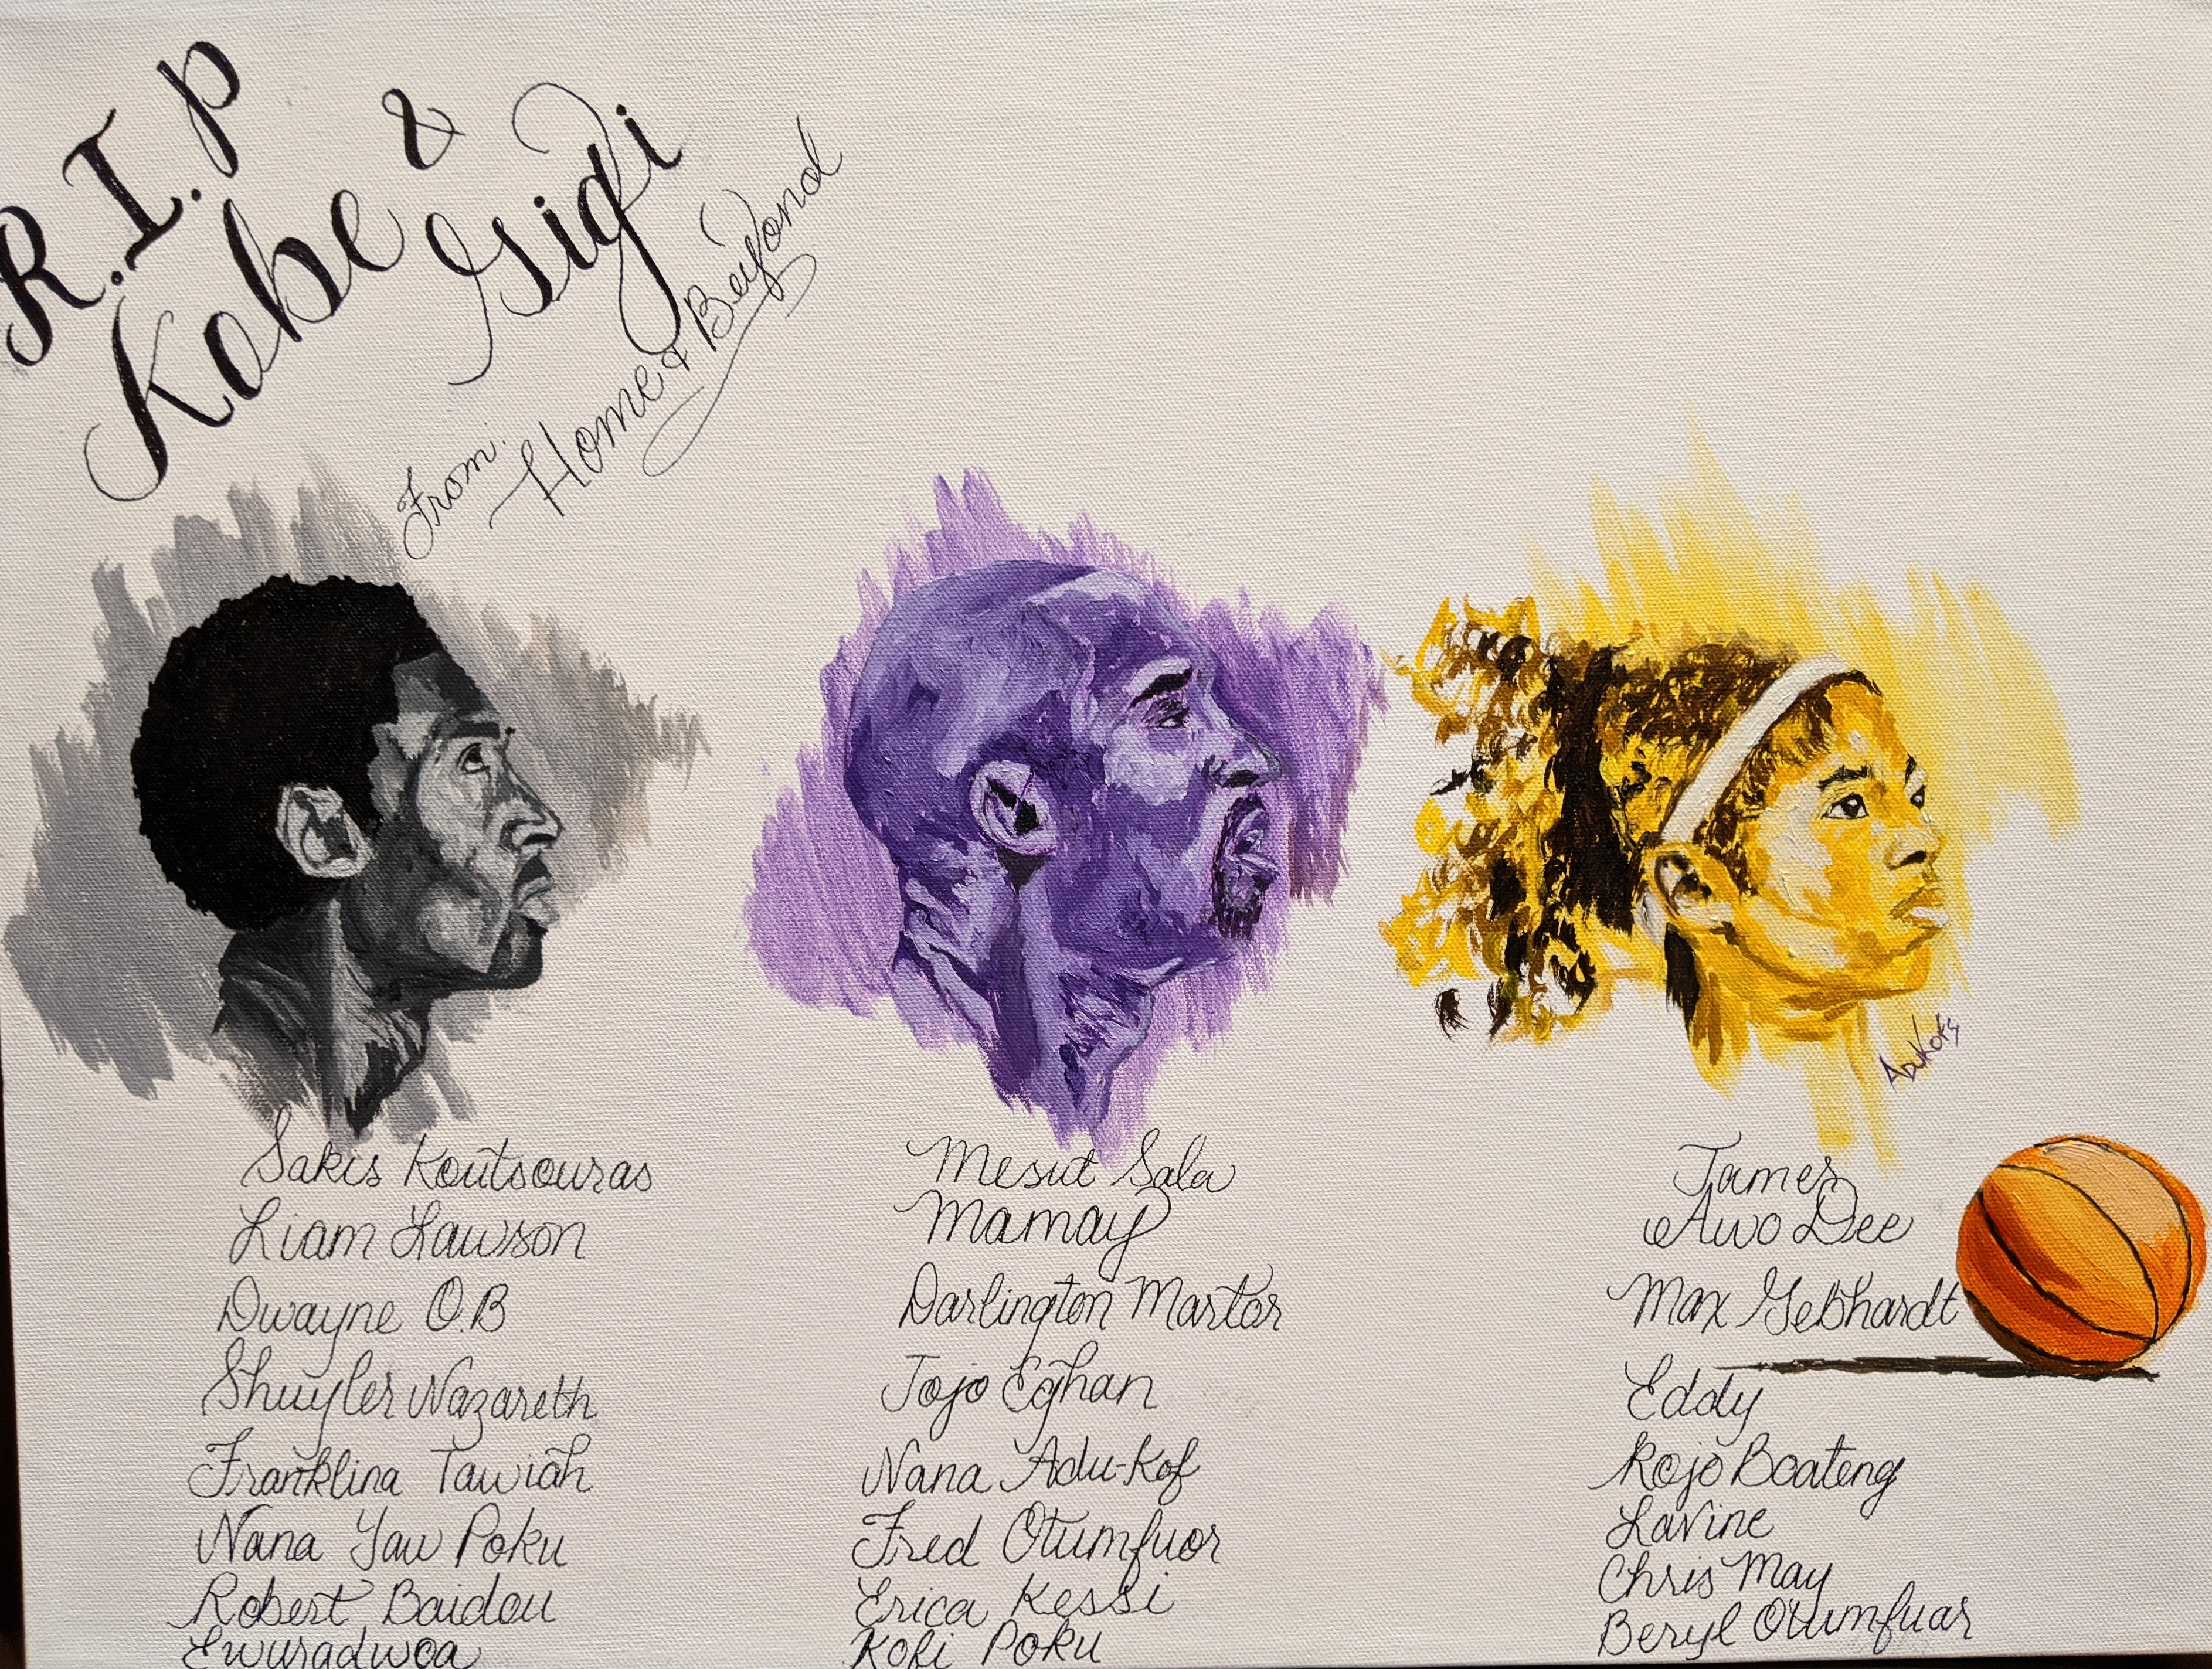 R.I.P
Kobe & Gigi
From:
Home & Beyond
AduKofs
Sakis Koutsouras
Liam Lawson
Dwayne O.B
Shuyler Nazareth
Franklina Tawiah
Nana Yaw Poku
Robert Baidou
Ewuradwoa
Mesut Sala
Mamay
Darlington Martor
Jojo Eghan
Nana Adu-Kof
Fred Otumfuor
Erica Kessi
Kofi Poku
James
Awo Dee
Max Gebhardt
Eddy
Kojo Boateng
LaVine
Chris May
Beryl Otumfuor